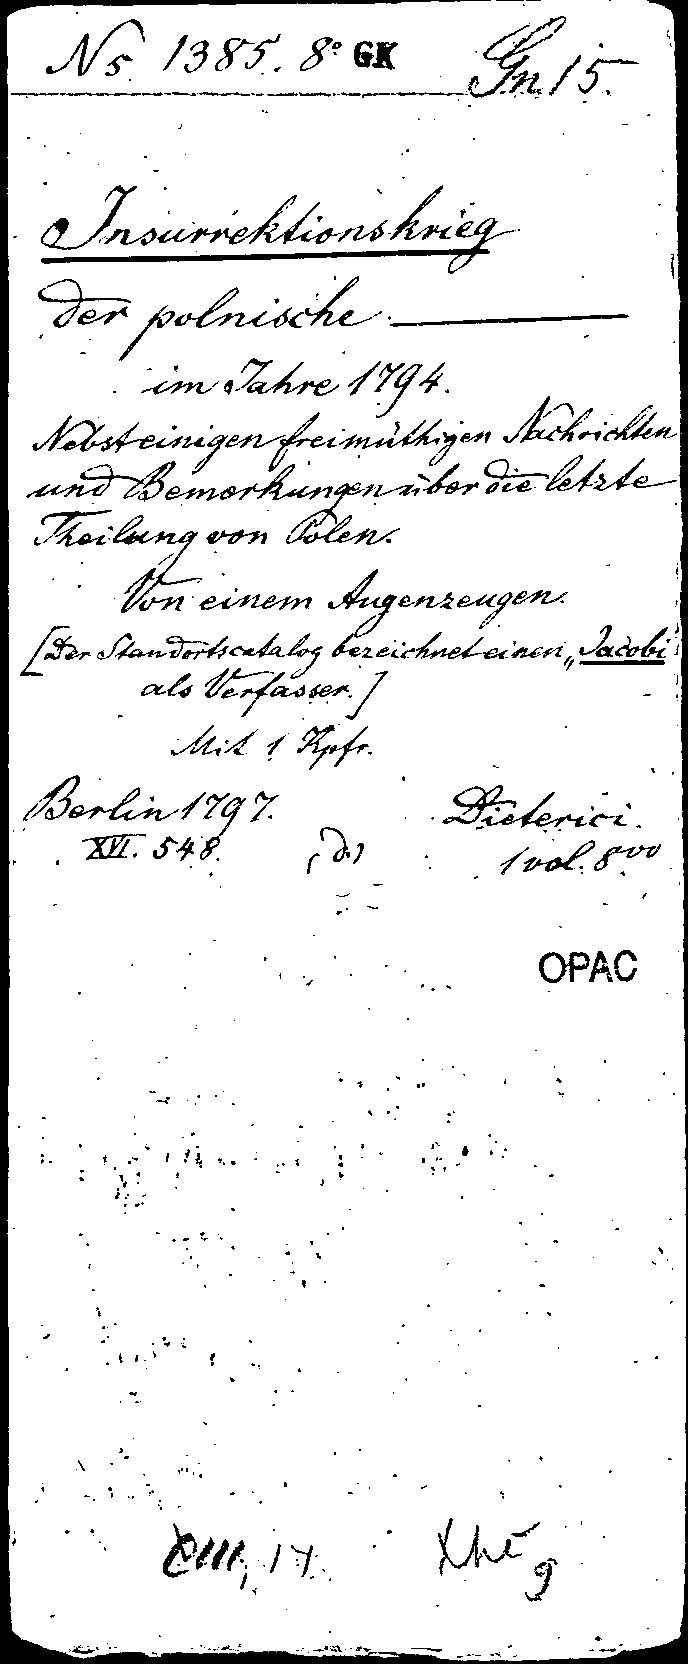 Ns 1385. 8° GK Gn 15.
Insurrektionskrieg
der polnische. ———
im Jahre 1794.
Nebst einigen freimüthigen Nachrichten
und Bemerkungen über die letzte
Theilung von Polen.
Von einem Augenzeugen.
[Der Standortscatalog bezeichnet einen „Jacobi"
als Verfasser.]
Mit 1 Kpfr.
Berlin 1797. Dieterici.
XVI. 548. (d.) 1 vol. 8vo
OPAC